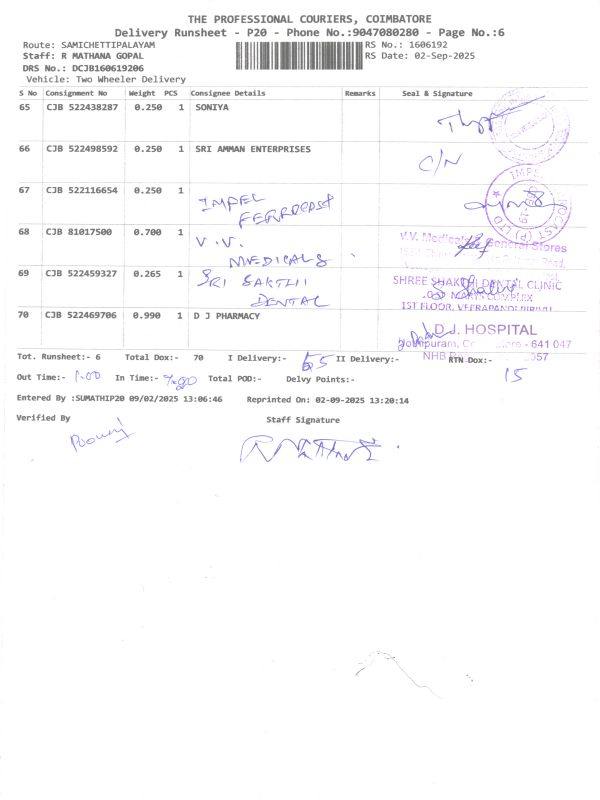 THE PROFESSIONAL COURIERS, COIMBATORE
Delivery Runsheet - P20 - Phone No.:9047080280 - Page No.:6
Route: SAMICHETTIPALAYAM RS No.: 1606192
Staff: R MATHANA GOPAL RS Date: 02-Sep-2025
DRS No.: DCJB160619206
Vehicle: Two Wheeler Delivery
S No Consignment No Weight PCS Consignee Details Remarks Seal & Signature
65 CJB 522438287 0.250 1 SONIYA
66 CJB 522498592 0.250 1 SRI AMMAN ENTERPRISES C/N
67 CJB 522116654 0.250 1 IMPEL
68 CJB 81017500 0.700 1 V.V. MEDICALS
V.V. Medicals General Stores
69 CJB 522459327 0.265 1 SRI SAKTHI DENTAL
SHREE SHAKTHI DENTAL CLINIC
COMPLEX
1ST FLOOR, VEERAPANDI PIRIVU
70 CJB 522469706 0.990 1 D J PHARMACY
D.J. HOSPITAL
- 641 047
Tot. Runsheet:- 6 Total Dox:- 70 I Delivery:- 55 II Delivery:- RTN Dox:- 15
Out Time:- 1.00 In Time:- Total POD:- Delvy Points:-
Entered By :SUMATHIP20 09/02/2025 13:06:46 Reprinted On: 02-09-2025 13:20:14
Verified By Staff Signature